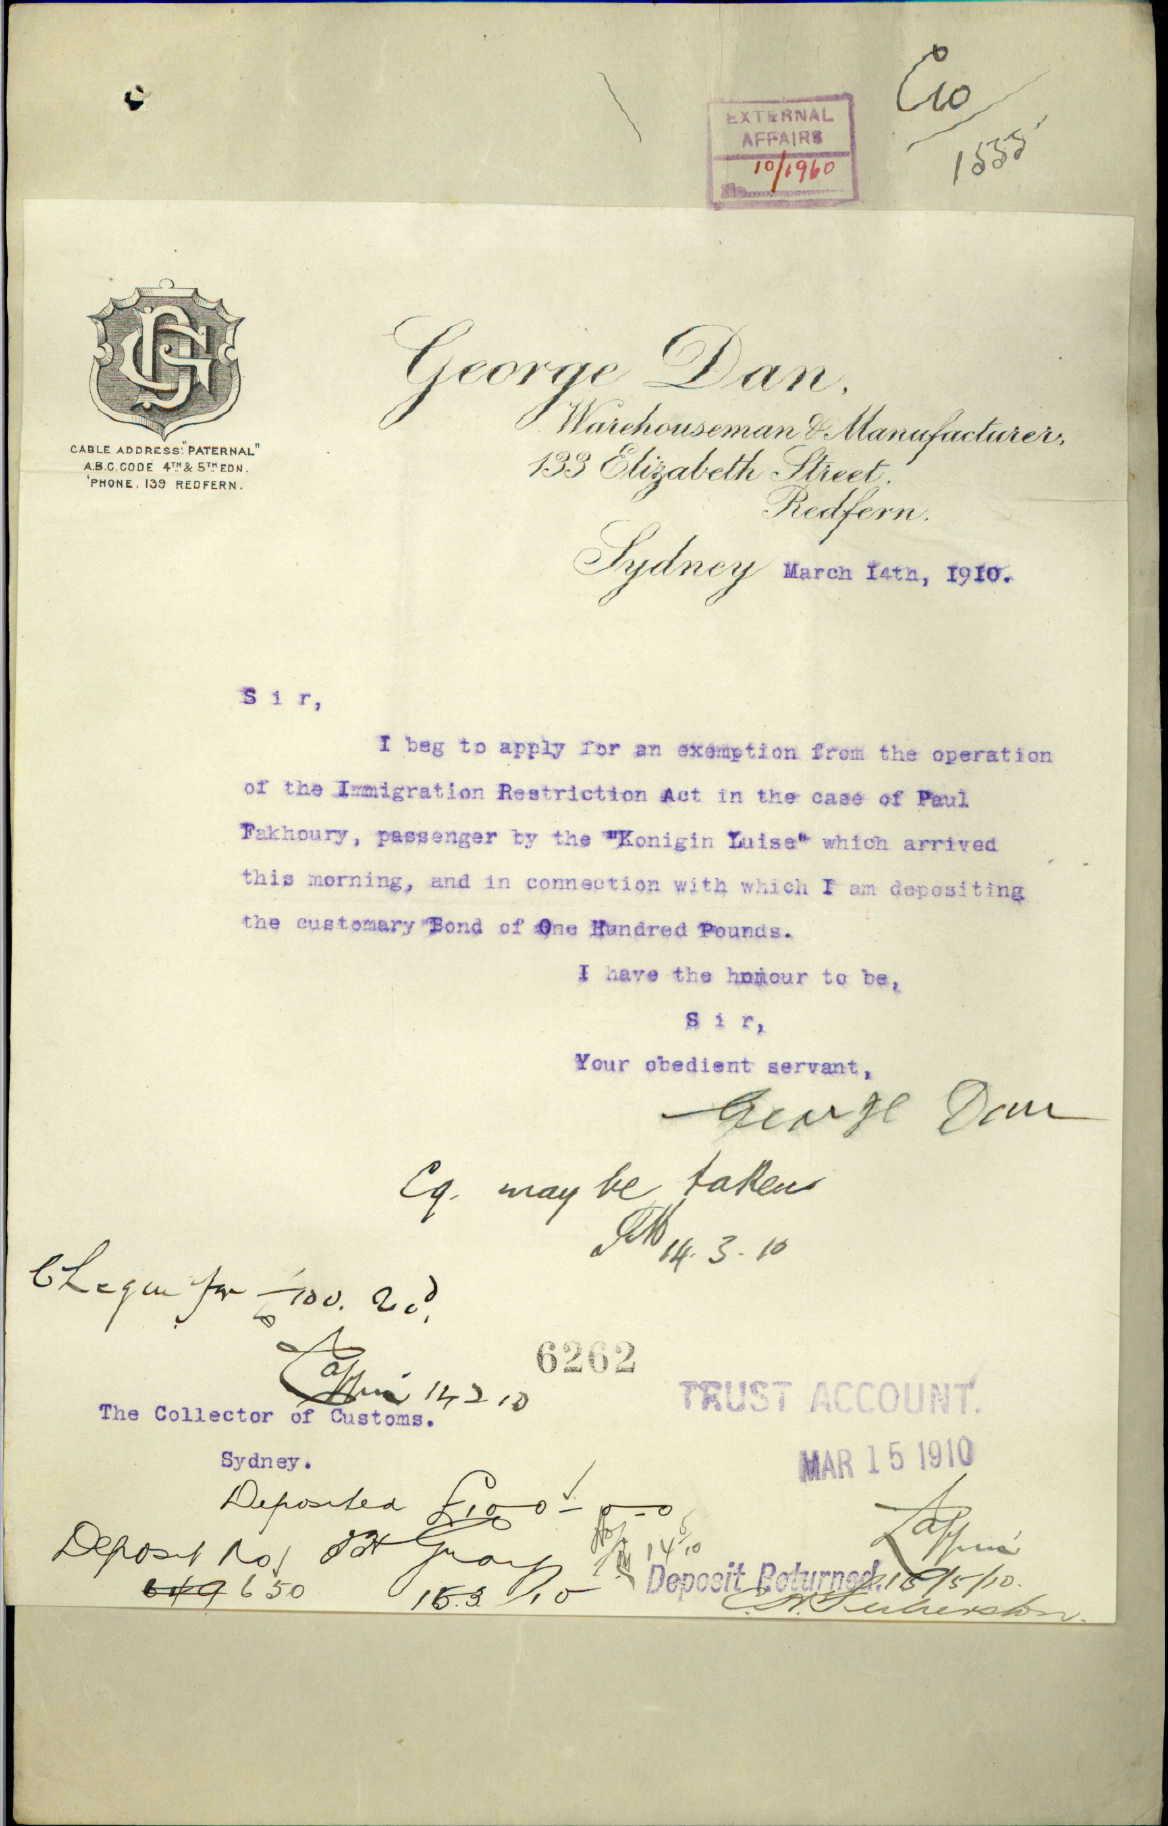 C10
1555
EXTERNAL
AFFAIRS
10/1960
No.
GD
CABLE ADDRESS: "PATERNAL"
A.B.C. CODE 4TH & 5TH EDN.
'PHONE. 139 REDFERN.
George Dan.
Warehouseman & Manufacturer,
133 Elizabeth Street.
Redfern.
Sydney March 14th, 1910.
S i r,
I beg to apply for an exemption from the operation
of the Immigration Restriction Act in the case of Paul
Fakhoury, passenger by the "Konigin Luise" which arrived
this morning, and in connection with which I am depositing
the customary Bond of One Hundred Pounds.
I have the honour to be,
S i r,
Your obedient servant,
George Dan
Cq. may be taken
14.3.10
Cheque for £100. Recd.
14 3 10
6262
TRUST ACCOUNT.
MAR 15 1910
The Collector of Customs.
Sydney.
Deposited £100-0-0
Deposit No/
649 650
15.3/10
Deposit Returned.